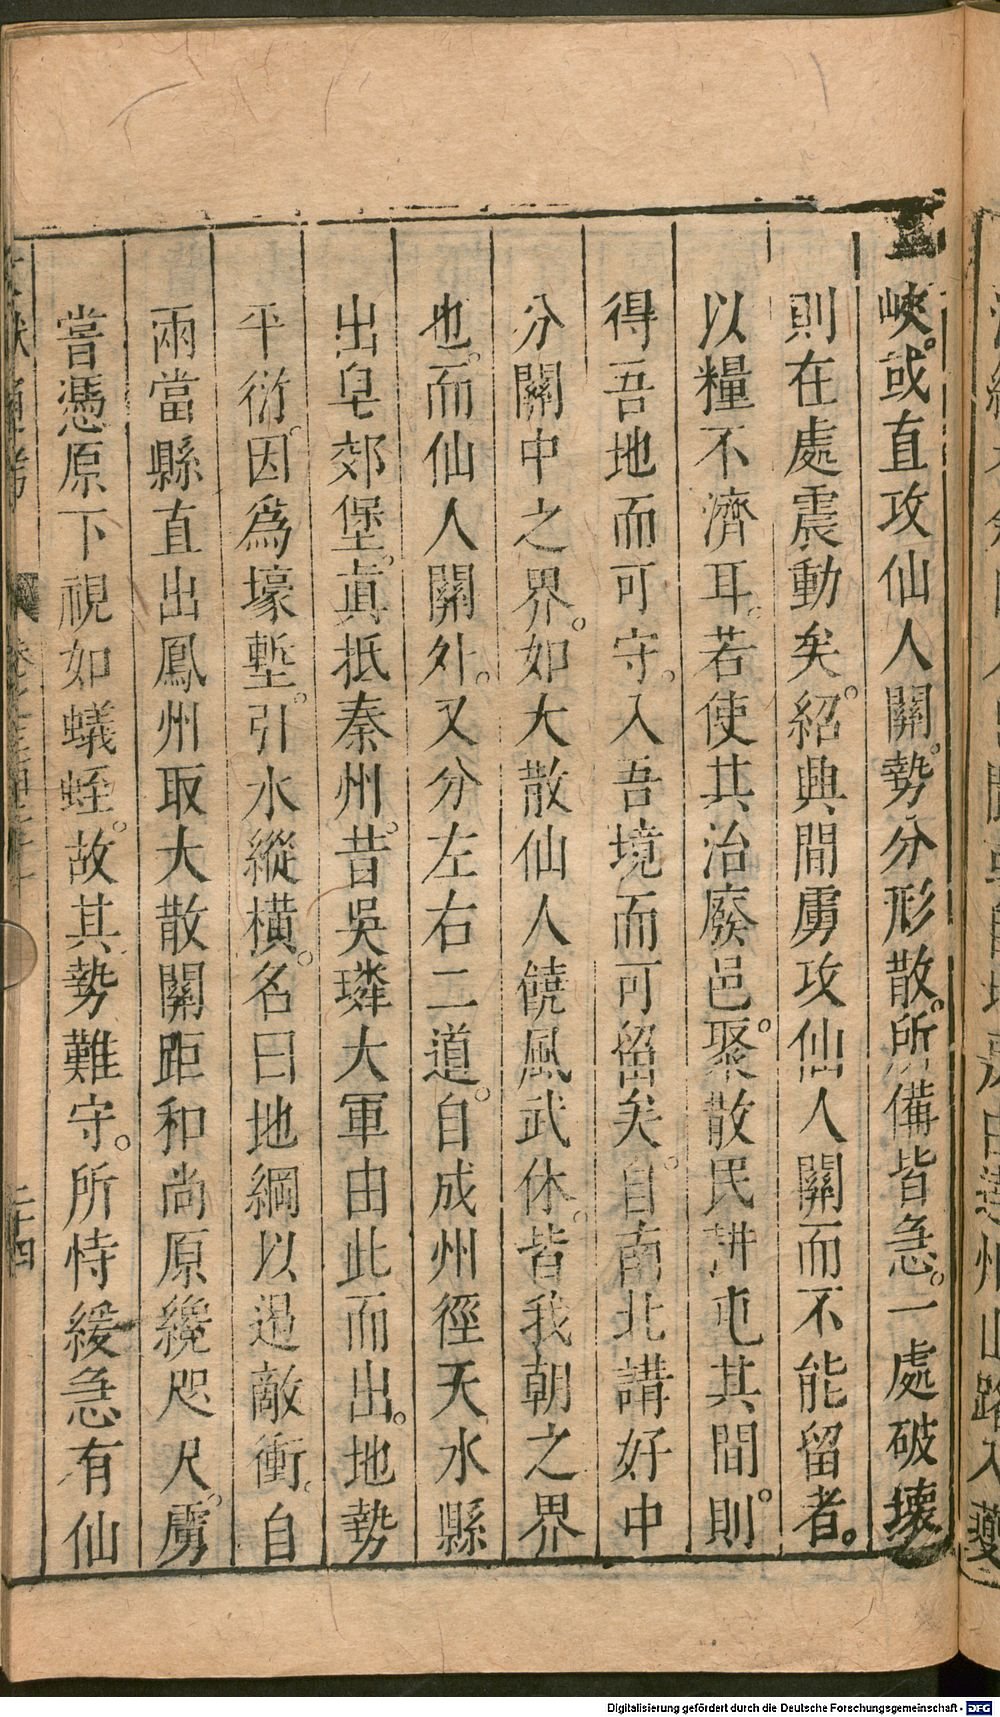 峽。或直攻仙人關。勢分形散。所備皆急。一處破壞
則在處震動矣。紹興間虜攻仙人關而不能留者。
以糧不濟耳。若使其治廢邑。聚散民耕屯其間。則
得吾地而可守。入吾境而可留矣。自南北講好中
分關中之界。如大散仙人饒風武休。皆我朝之界
也。而仙人關外。又分左右二道。自成州徑天水縣
出皂郊堡。眞抵秦州。昔吳璘大軍由此而出。地勢
平衍。因爲壕塹。引水縱橫。名曰地綱以遏敵衝。自
兩當縣直出鳳州取大散關距和尚原纔咫尺。虜
嘗憑原下視如蟻蛭。故其勢難守。所恃緩急有仙
二十四
Digitalisierung gefördert durch die Deutsche Forschungsgemeinschaft - DFG